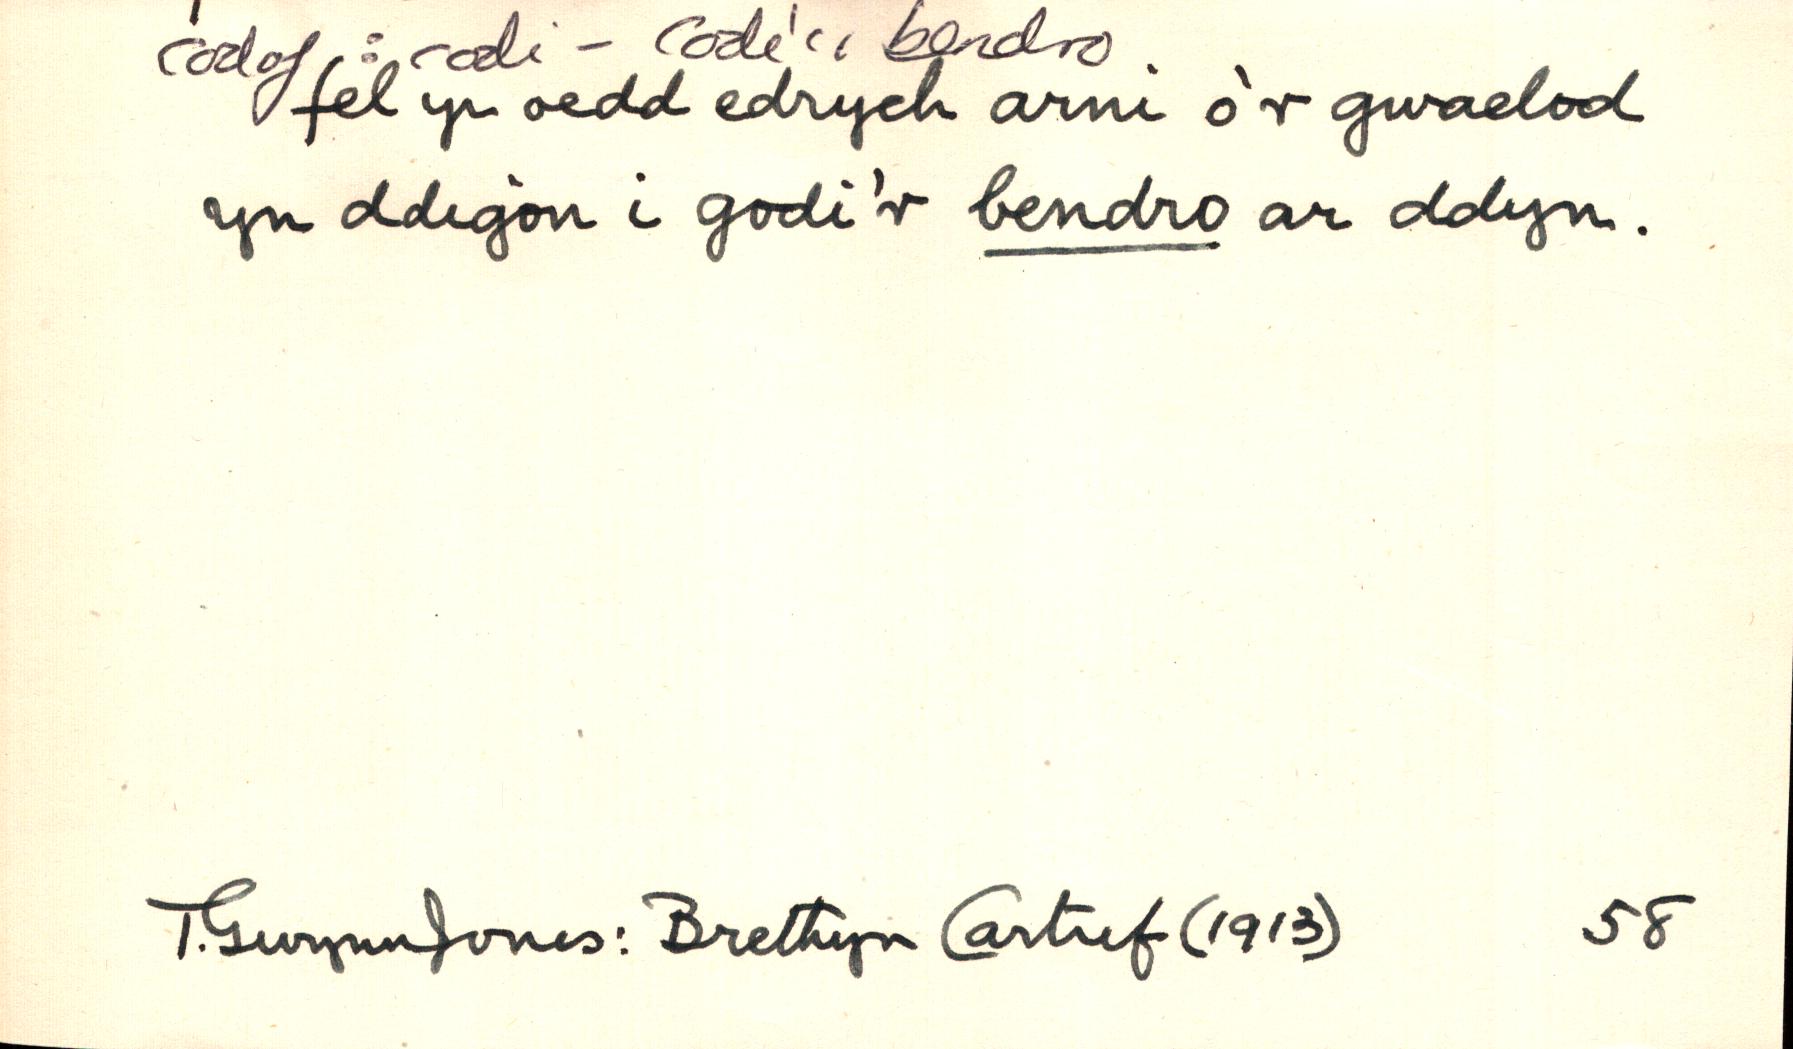 codaf : codi – codi'r bendro
fel yr oedd edrych arni o'r gwaelod
yn ddigon i godi'r bendro ar ddyn.
T. Gwynn Jones: Brethyn Cartref (1913) 58